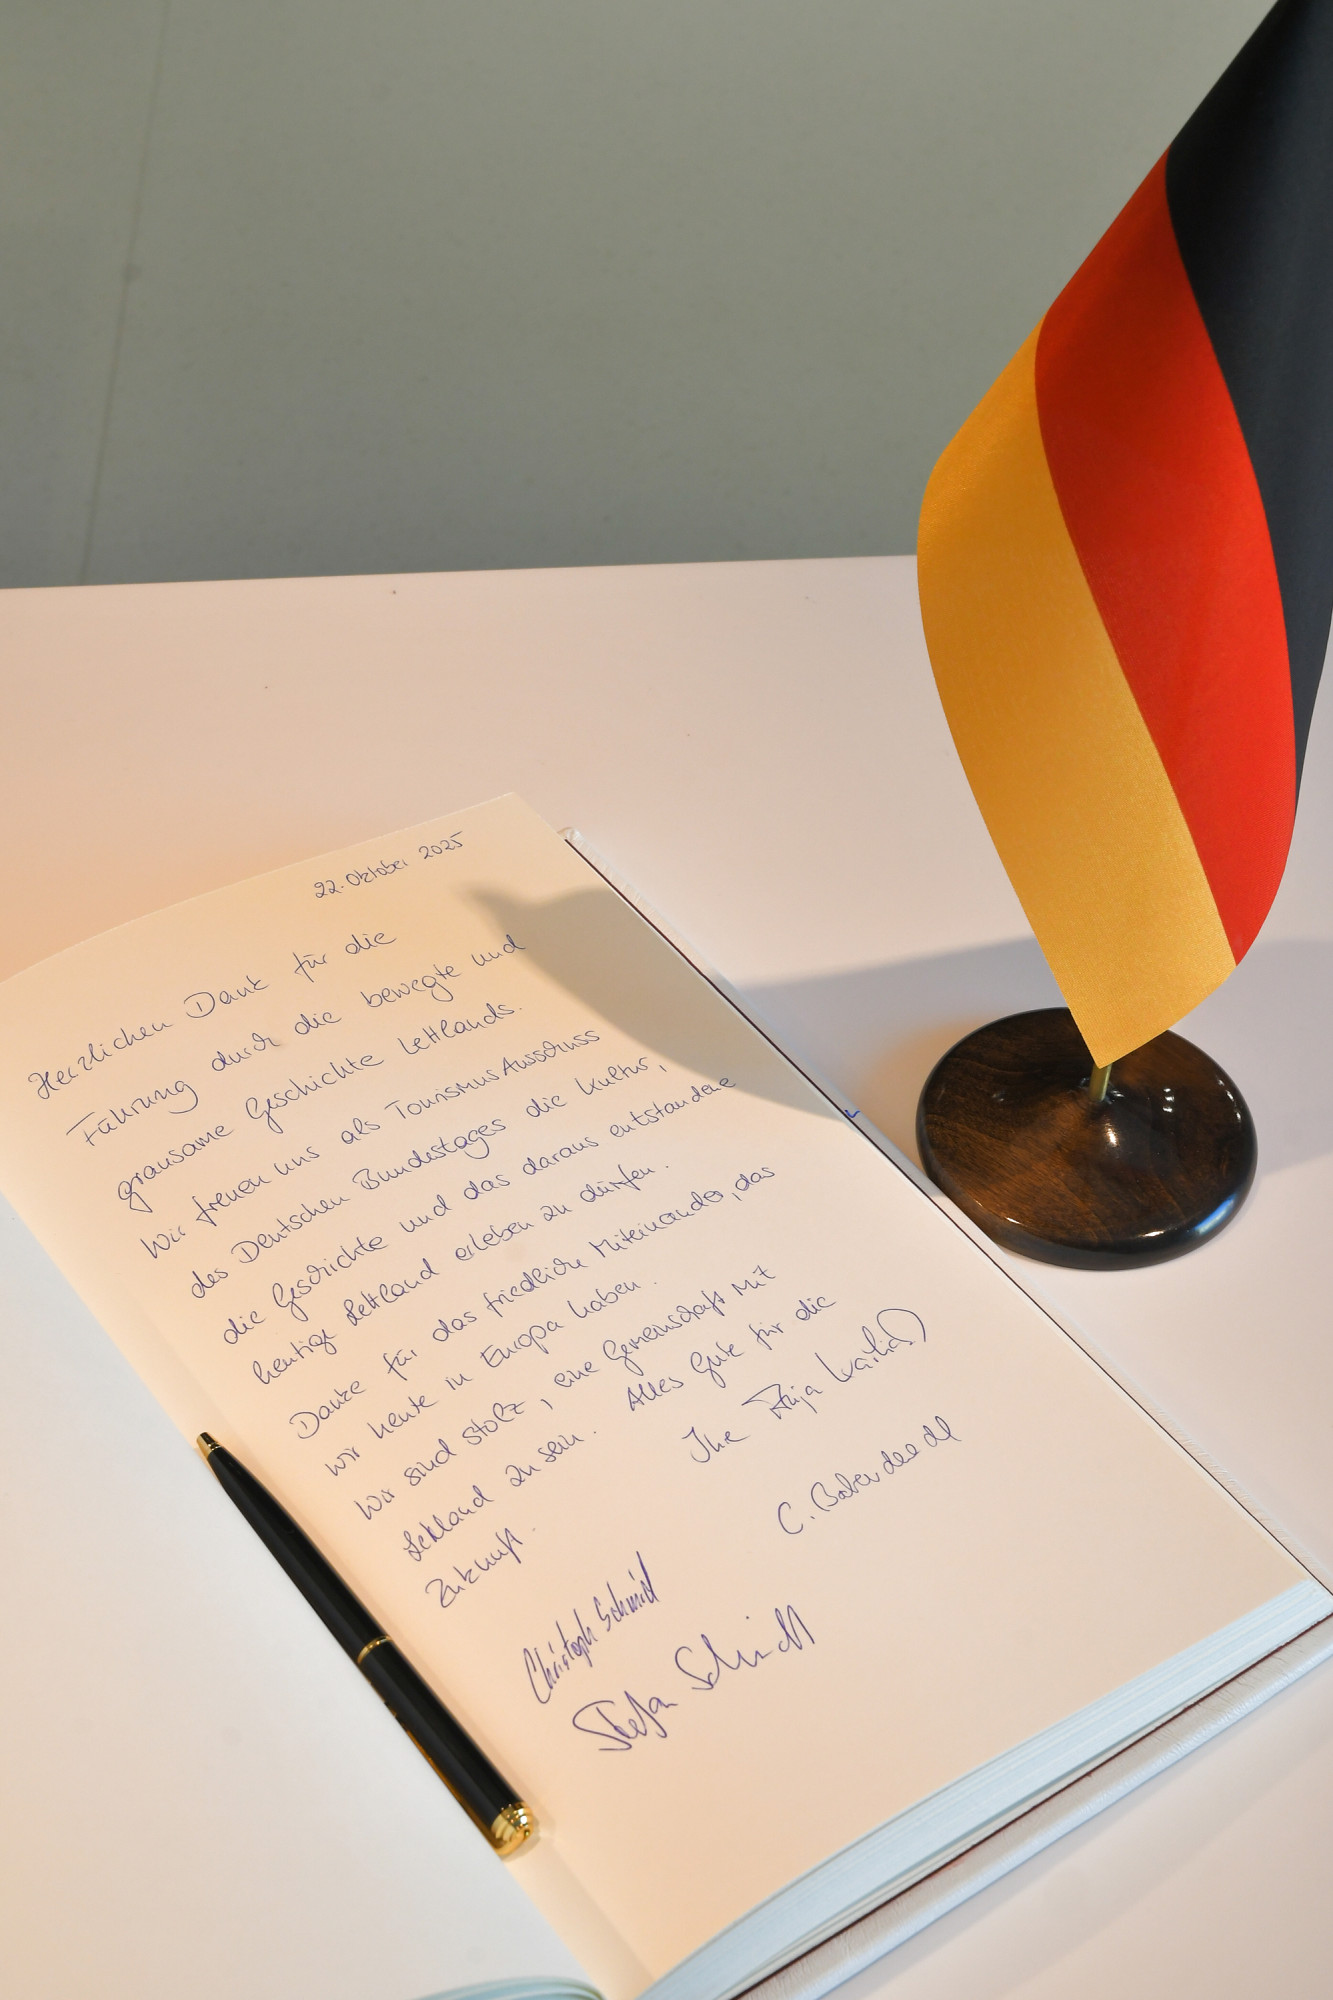 22. Oktober 2025
Herzlichen Dank für die
Führung durch die bewegte und
grausame Geschichte Lettlands.
Wir freuen uns als Tourismus Ausschuss
des Deutschen Bundestages die Kultur,
die Geschichte und das daraus entstandene
heutige Lettland erleben zu dürfen.
Danke für das friedliche Miteinander, das
wir heute in Europa haben.
Wir sind stolz, eine Gemeinschaft mit
Lettland zu sein. Alles Gute für die
Zukunft.
Ihre Anja Karliczek
C.
Christoph Schmid
Stefan Schmidt